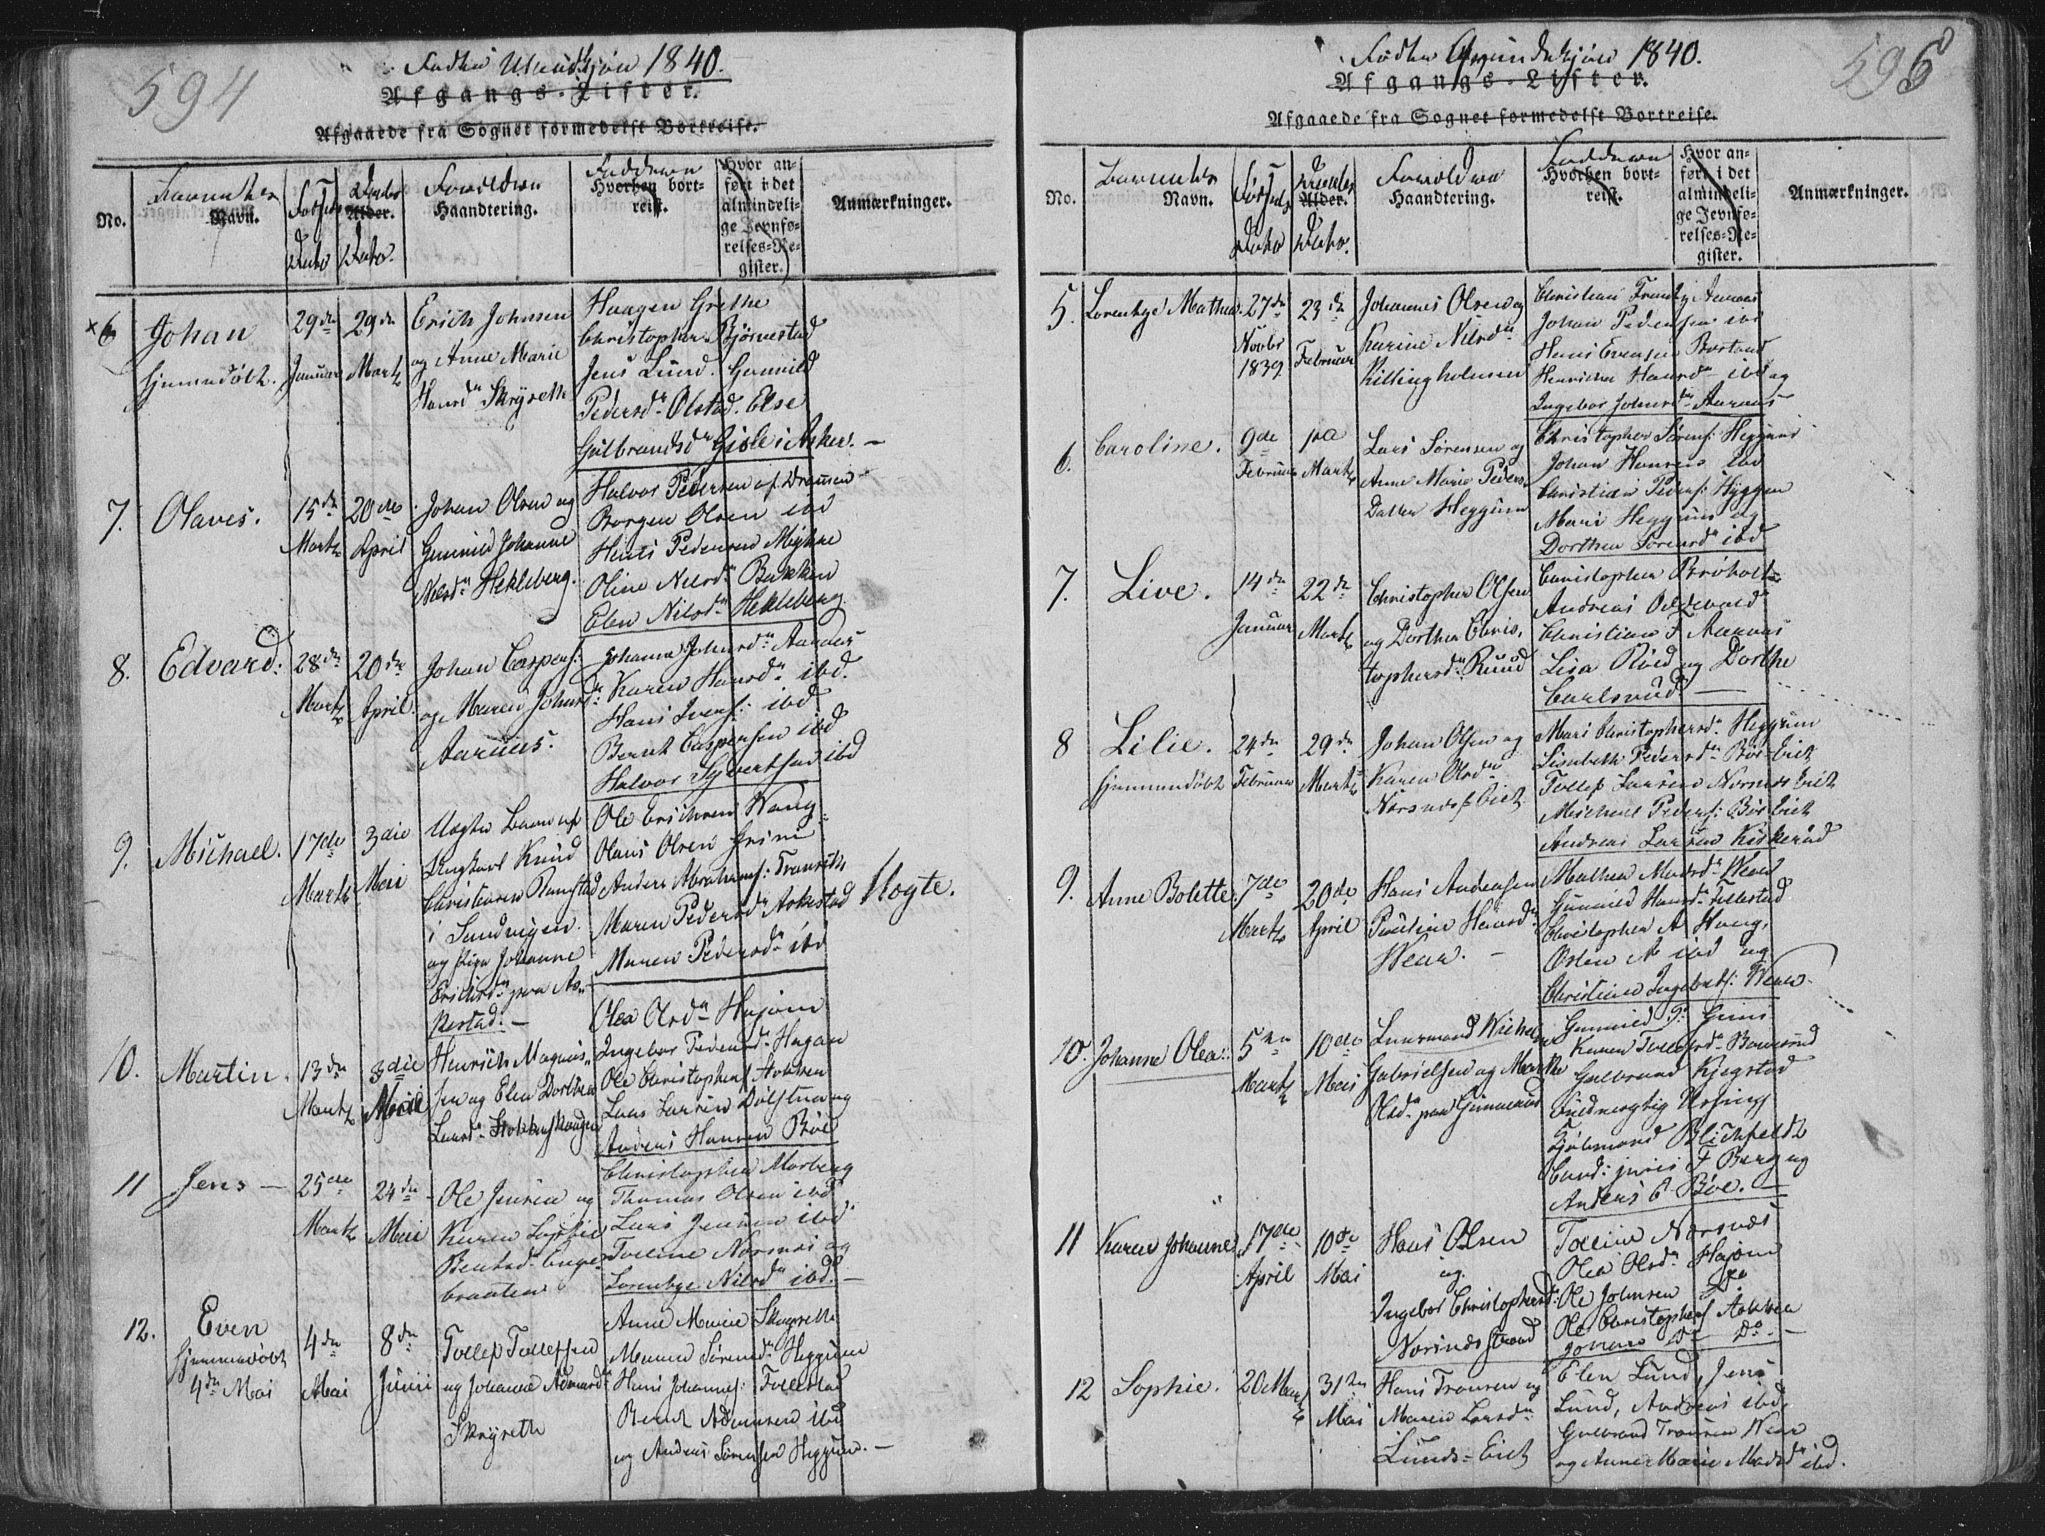 594
Fødte Mandkjøn 1840.
Afgangs-Lister.
Afgaaede fra Sognet formedelst Bortreise.
No.
Barnets
Navn.
Fødsels
Dato
Daabs
Alder.
Dato.
Forældrene
Haandtering.
Fadderne
Hvorhen bort-
reist.
Hvor an-
ført i det
almindeli-
ge Jevnfø-
relses-Re-
gister.
Anmærkninger.
6
Johan
hjemmedøbt.
29de
Januar
29de
Marts
Erich Johnsen
og Anne Marie
Hansd. Skrÿseth
Haagen Grethe
Christopher Bjørnestad
Jens Lund. Gunnild
Pedersd. Olstad. Else
Gulbrandsd. Gisle i Asker. —
7.
Olaves.
15de
Marts
20de
April
Johan Olsen og
Gunnild Johanne
Nilsd. Hekleberg.
Halvor Pedersen af Drammen
Borger Olsen ibd
Niels Pedersen
Oline Nilsd. Bakken
Elen Nilsd. Hekleberg
8.
Edvard.
28de
Marts
20de
April
Johan Caspers.
og Maren Johnsd.
Aarnæs.
Johanne Johnsd. Aarnæs
Karen Hansd. ibd.
Hans Ivers. ibd
Bernt Caspersen ibd
Halvor Syvertsen ibd
9.
Michael.
17de
Marts
3die
Mai
Uægte Barn af
Ungkarl Knud
Christensen Ramstad
i Sandvigen.
og Pige Johanne
Erichsd. paa As-
kestad. —
Ole Erichsen Wang
Olaus Olsen Grini
Anders Abrahams. Tranrith
Maren Pedersd. Askestad
Maren Pedersd. ibd
Uægte.
10.
Martin.
13de
Marts
3die
April
Henrich Magnus-
sen og Elen Dorthea
Larsd. Stokkerhaugen
Olea Olsd. Hajom
Ingebor Pedersd. Hagan
Ole Christophers. Aokken
Lars Larsen Dølstrøm og
Anders Hansen Böe
11
Jens —
25de
Marts
24de
Mai
Ole Jensen og
Karen Sophie
Bentsd. Enge-
braaten
Christopher Morberg
Thomas Olsen ibd
Lars Jensen ibd
Tolline Norsnæs og
Lorentze Nilsd. ibd. —
12.
Even
hjemmedøbt
4de Mai
4de
Mai
8de
Juni
Tollef Tollefsen
og Johanne Adamsd.
Skrÿseth
Anne Marie Skryseth
Maren Sørensd. Heggum
Hans Johannes. Follestad
Bernt Adamsen ibd
og Anders Sørensen Heggum. —
595
6
Fødte Qvindekjøn 1840.
Afgangs-Lister.
Afgaaede fra Sognet formedelst Bortreise.
No.
Barnets
Navn.
Fødsels
Dato
Daabs
Alder.
Dato.
Forældrene
Haandtering.
Fadderne
Hvorhen bort-
reist.
Hvor an-
ført i det
almindeli-
ge Jevnfø-
relses-Re-
gister.
Anmærkninger.
5.
Lorentze Mathea.
27de
Novbr
1839
23de
Februar
Johannes Olsen og
Karine Nilsd.
Killingholmen
Christian Frants. Aarnæs
Johan Pedersen ibd
Hans Evensen Borstad
Henriche Hansd. ibd og
Ingebor Johnsd. Aarnæs
6.
Caroline.
9de
Februar
1ste
Marts
Lars Sørensen og
Anne Marie Peders-
Datter Heggum
Christopher Sørens. Heggum
Johan Hansen ibd
Christian Peders. Heggum
Mari Heggum og
Dorthea Sørensd. ibd
7.
Live.
14de
Januar
22de
Marts
Christopher Olsen
og Dorthea Chris-
tophersd. Ruud
Christopher Brøholt
Andreas Odevald
Christian F Aarnæs
Lisa Röed og Dorthe
Carlsrud —
8
Lilie.
hjemmedøbt
24de
Februar
29de
Marts
Johan Olsen og
Karen Olsd.
Norsnæs Eiet
Mari Christophersd. Heggum
Lisabeth Pedersd. Böe Eiet
Tollef Larsen Norsnæs Eiet
Michael Peders. Böe Eiet
Andreas Larsen Kiskeröd
9.
Anne Bolette.
7de
Marts
20de
April
Hans Andersen
Pauline Hansd.
Wear. —
Mathea Madsd. Wear
Gunnild Hansd. Follestad
Christopher A Haug.
Osten A ibd og
Christian Ingebrets. Wear.
10.
Johanne Olea.
5te
Marts
10de
Mai
Landmand Michel
Gabrielsen og Marthe
Olsd. paa Gunnerud
Gunnild P: Grini
Karen Tollefsd. Bannerud
Gulbrand Kjegstad
Fuldmægtig
Blichfeldt
Cand: juris F Berg og
Anders C Böe. —
11
Karen Johanne.
17de
April
10de
Mai
Hans Olsen
og
Ingebor Christophersd:
Norsnæs Strand
Tolline Norsnæs
Olea Olsd. Hajom
Ole Johnsen Do
Ole Christophers. Aokken
Johan Do Do —
12
Sophie.
20 Marts
31te
Mai
Hans Transen og
Maren Larsd.
Lunds-Eiet
Elen Lund, Jens
Lund, Andreas ibd,
Gulbrand Transen Wear
og Anne Marie Madsd. ibd.